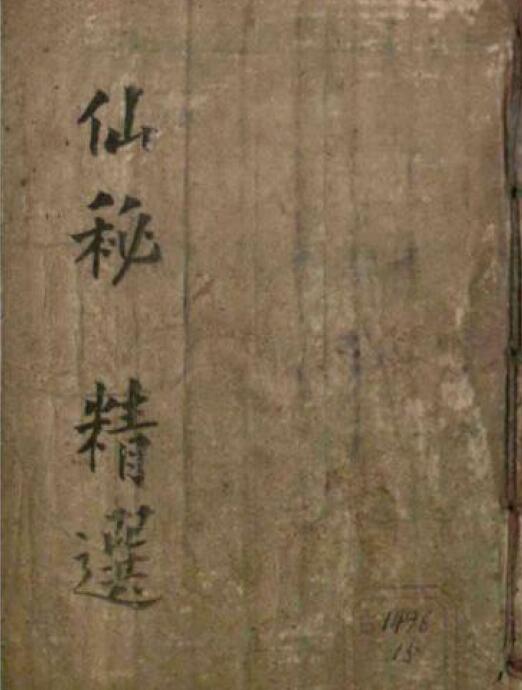 仙秘 精選
1496
15